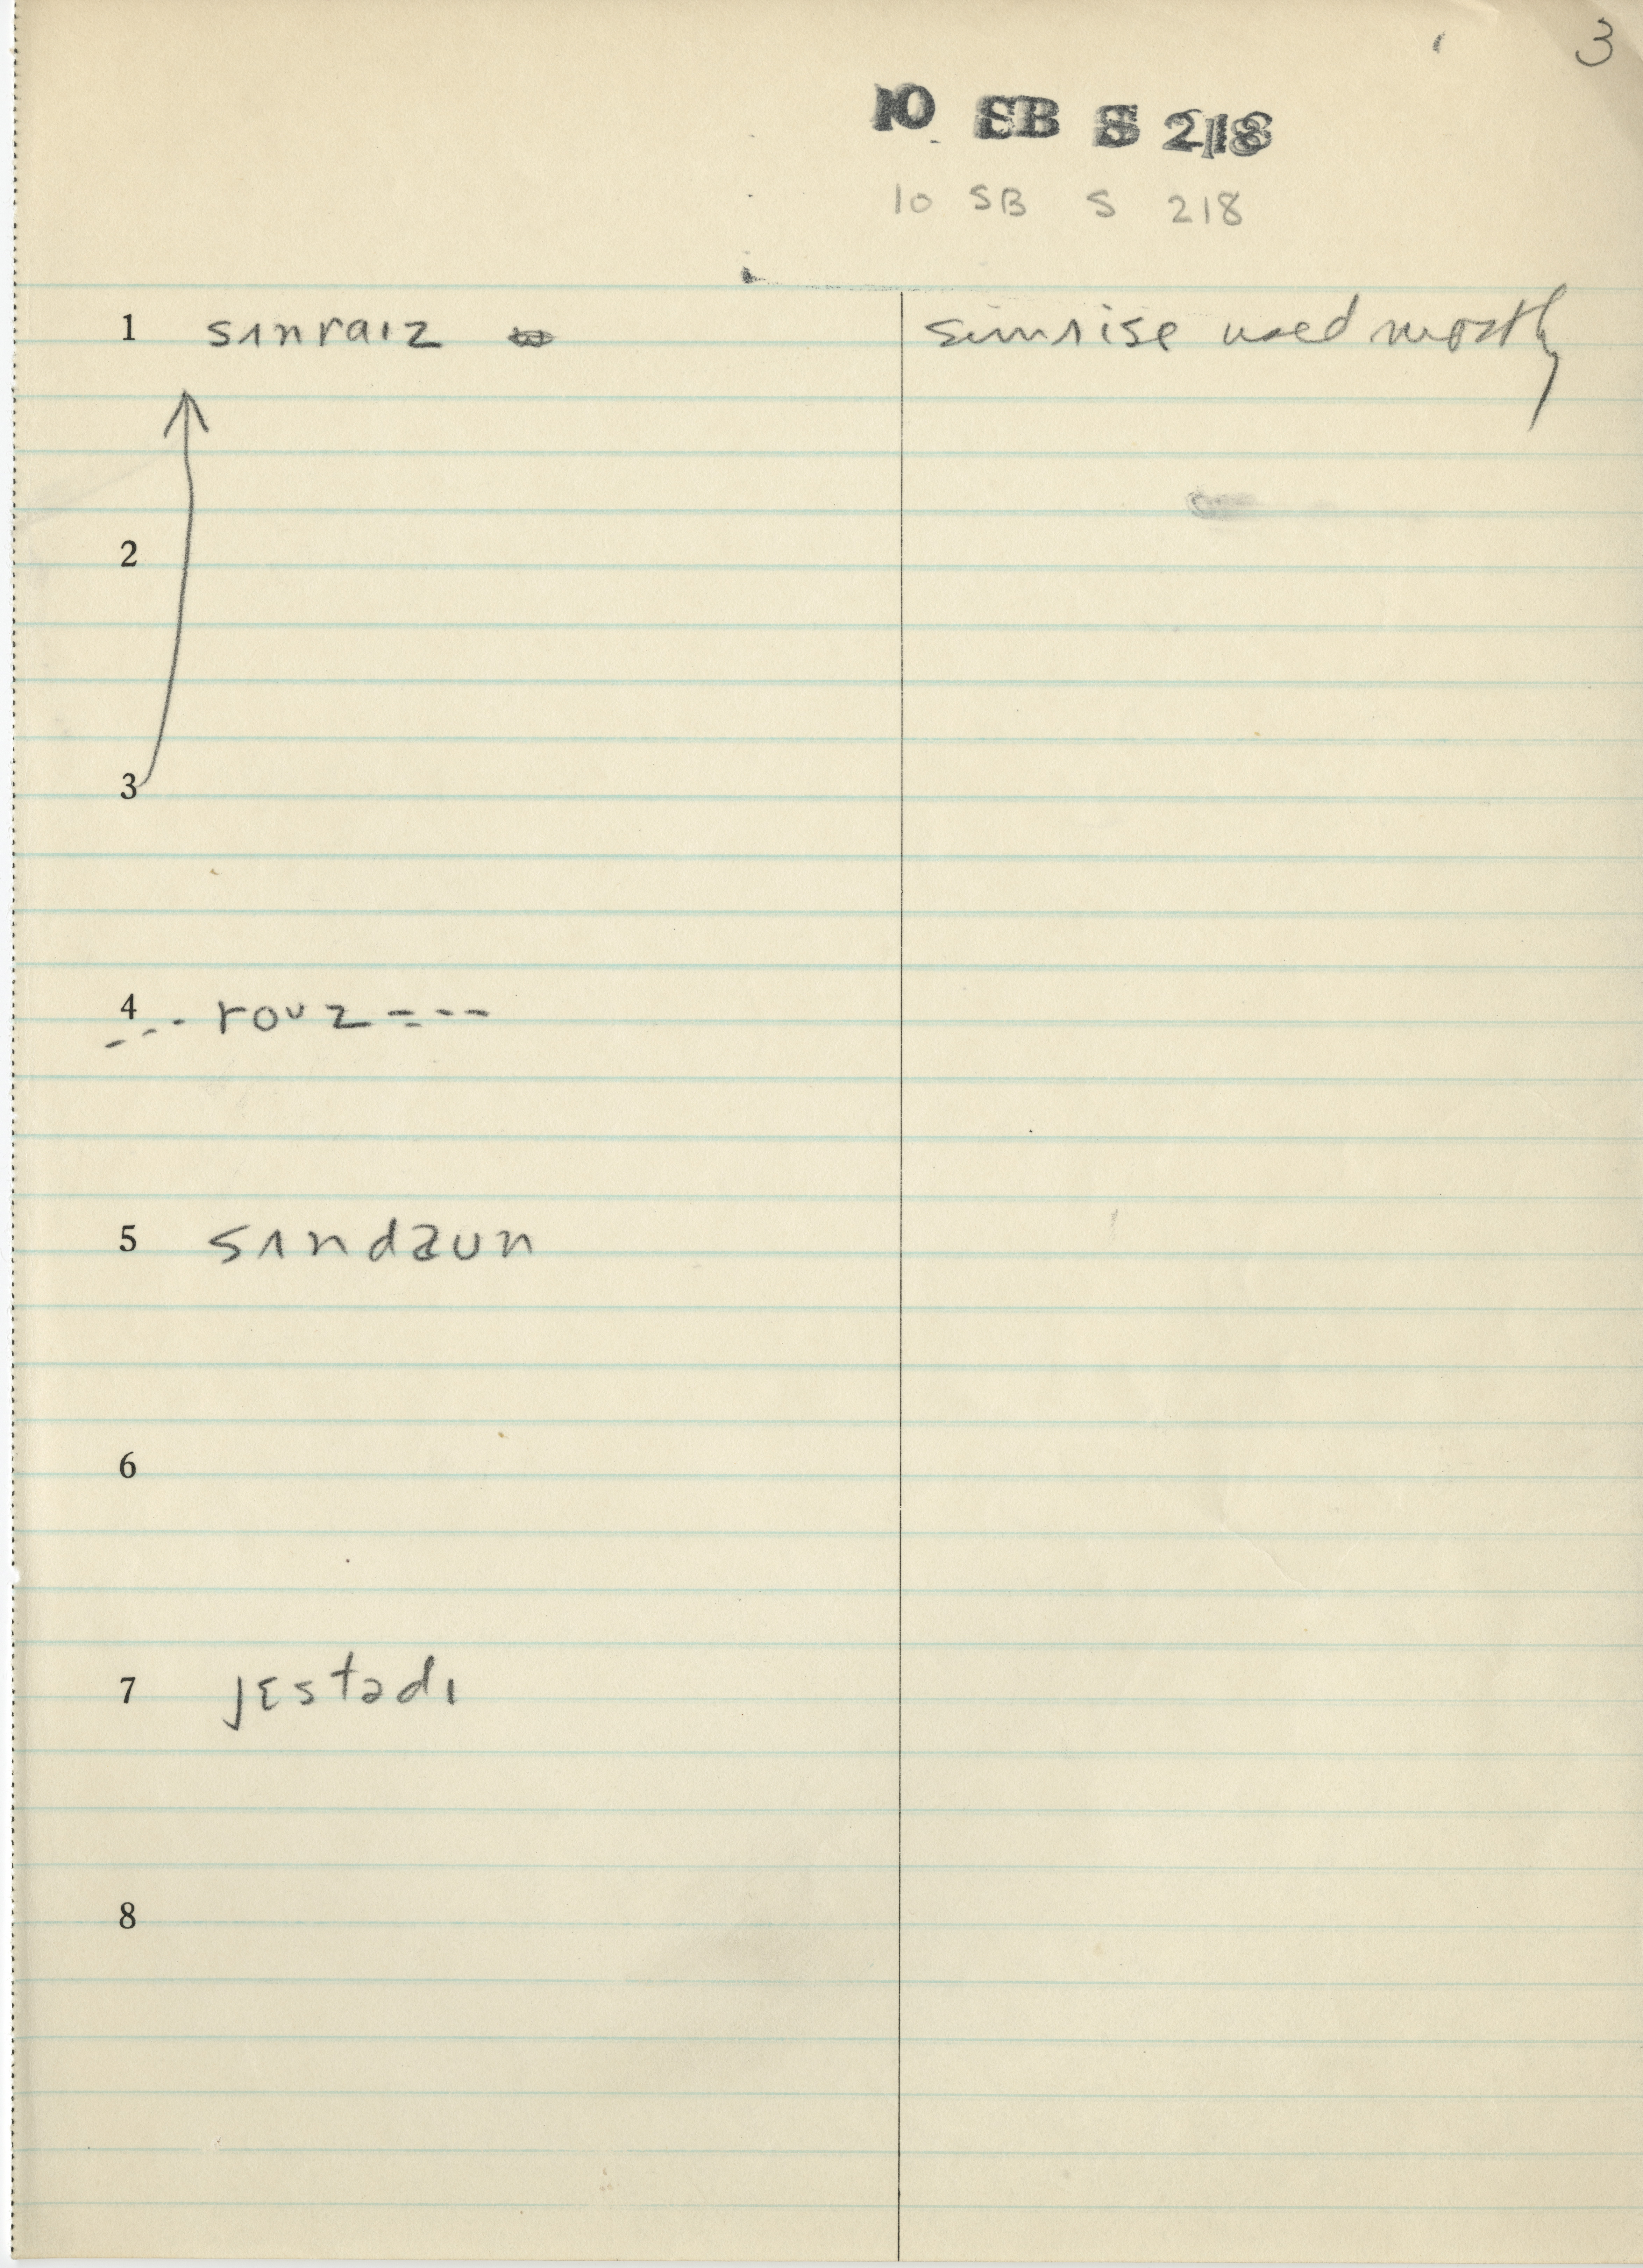 3
10 SB S 218
10 SB S 218
1 sʌnraɪz sunrise used mostly
2
3
4 -- rouz ----
5 sʌndaun
6
7 jɛstədɪ
8